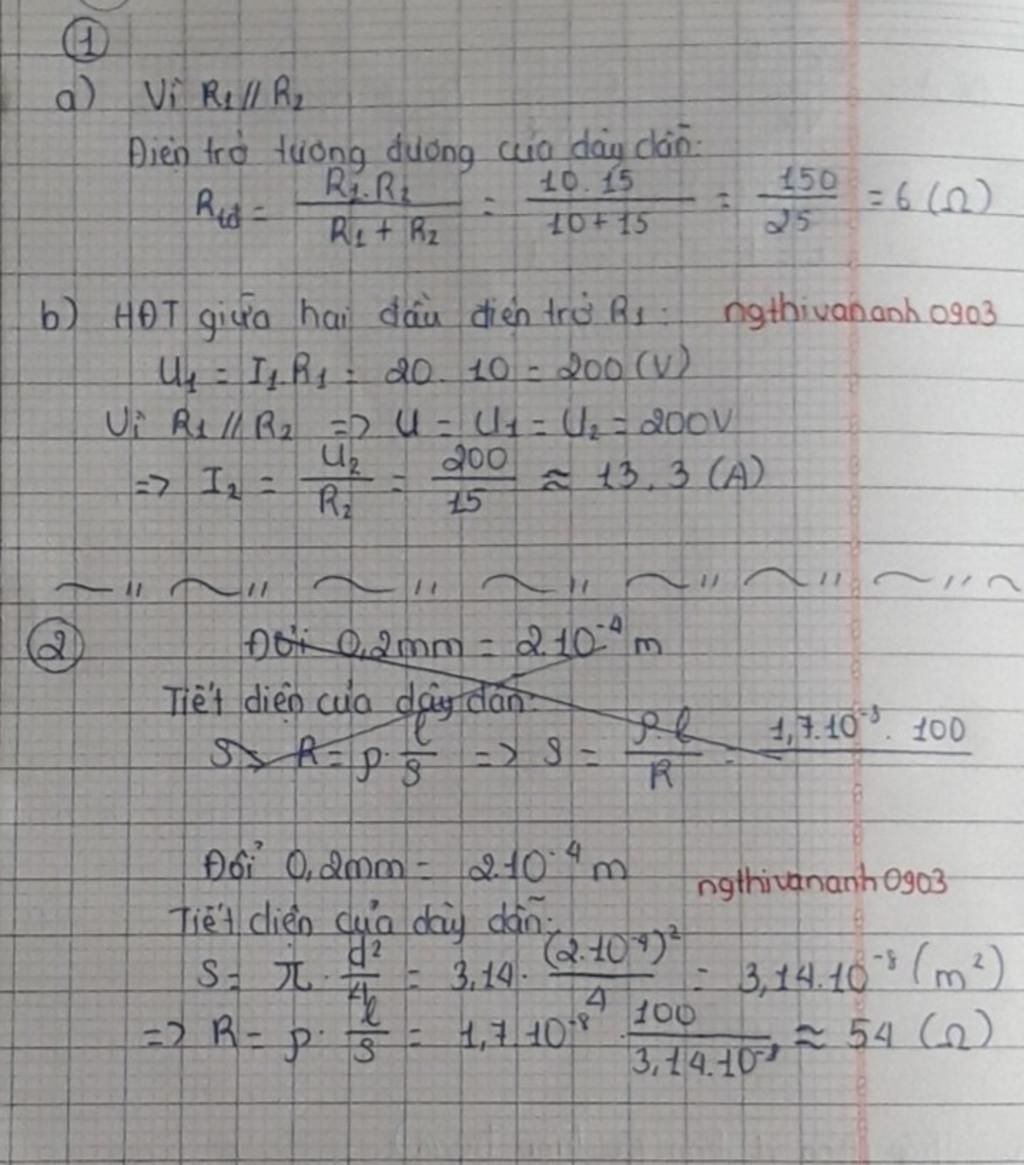 1
a) Vì R₁ // R₂
Điện trở tương đương của dây dẫn:
Rtđ = R₁.R₂ / R₁ + R₂ = 10.15 / 10+15 = 150 / 25 = 6 (Ω)
b) HĐT giữa hai đầu điện trở R₁: ngthivananh0903
U₁ = I₁.R₁ = 20.10 = 200 (V)
Vì R₁ // R₂ => U = U₁ = U₂ = 200V
=> I₂ = U₂ / R₂ = 200 / 15 ≈ 13,3 (A)
2 Đổi 0,2mm = 2.10⁻⁴ m
Tiết diện của dây dẫn:
S = R = ρ. l / S => S = ρ.l / R = 1,7.10⁻⁸. 100
Đổi 0,2mm = 2.10⁻⁴ m
ngthivananh0903
Tiết diện của dây dẫn:
S = π. d² / 4 = 3,14. (2.10⁻⁴)² / 4 = 3,14.10⁻⁸ (m²)
=> R = ρ. l / S = 1,7.10⁻⁸. 100 / 3,14.10⁻⁸ ≈ 54 (Ω)